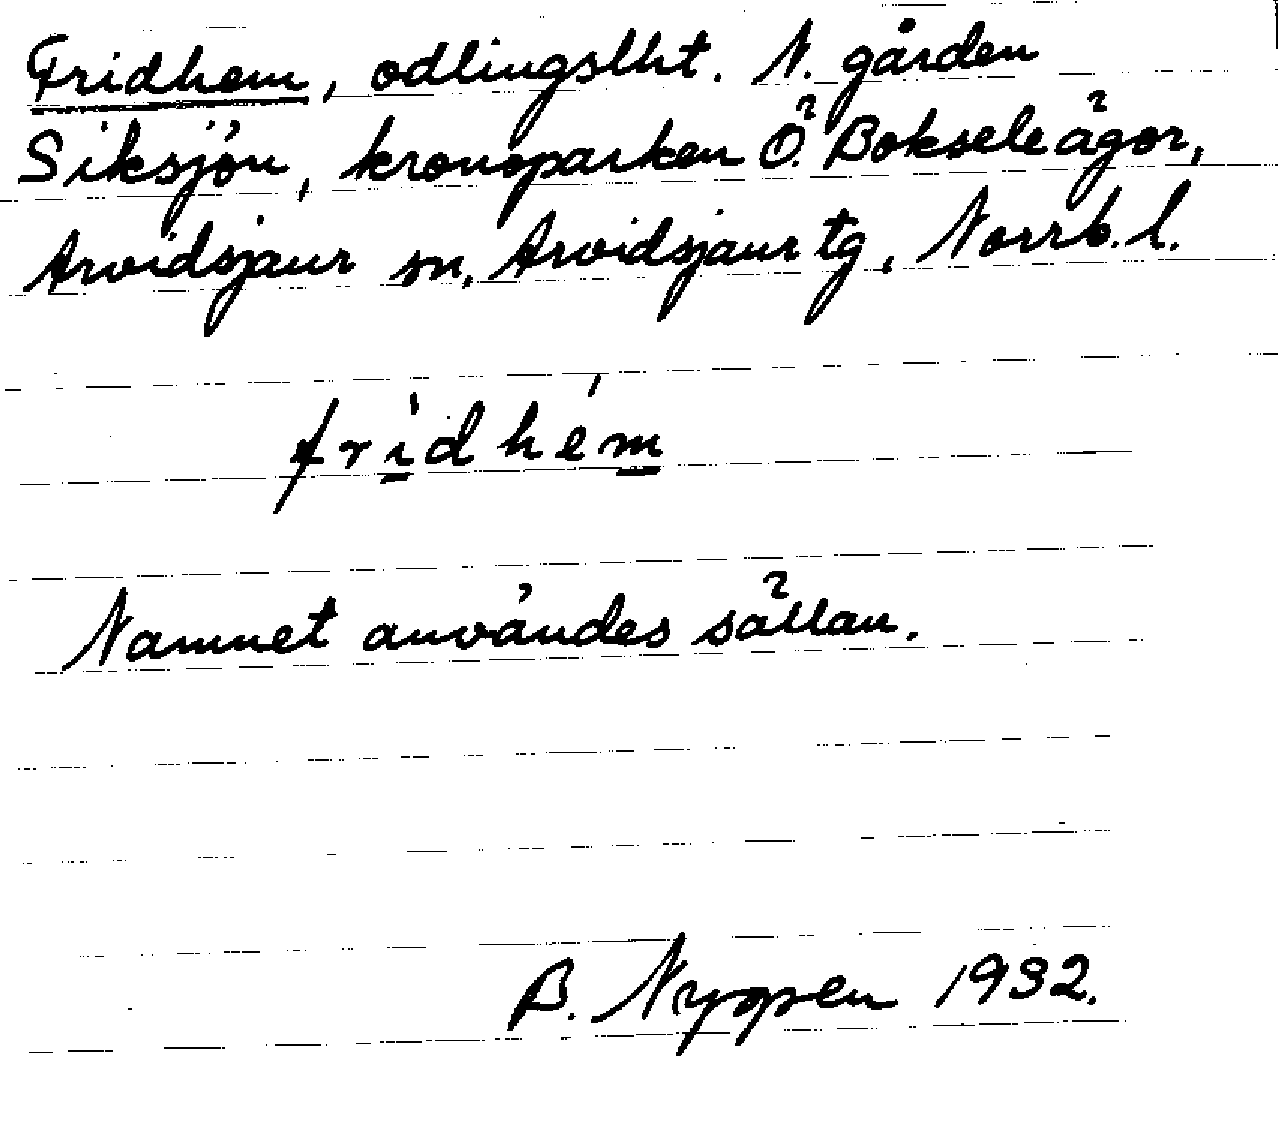 Fridhem, odlingslht. N. gården
Siksjön, kronoparken Ö. Boksele ägor,
Arvidsjaur sn, Arvidsjaur tg, Norrb. l.
fridhém
Namnet användes sällan.
B. 1932.